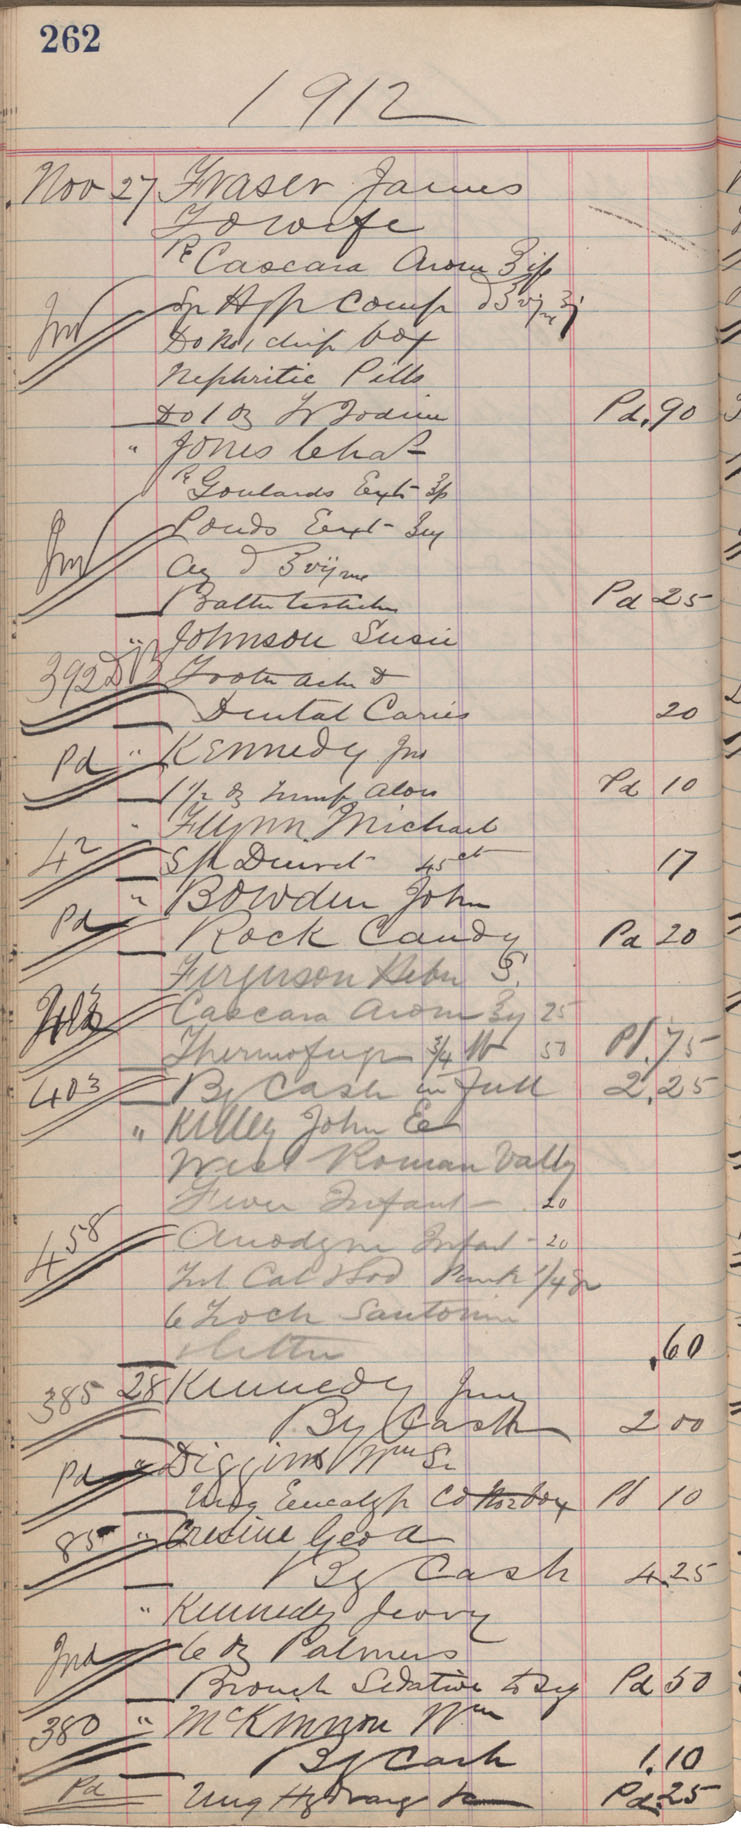 262
1912
Nov 27 Fraser James
To wife
Rx Cascara Arom ℥ifs
Jno Sp Hyp Comp
Do No 1 chip box
Nephritic Pills
Do 1 oz Tr Iodine Pd .90
" Jones Chas
Rx Goulards Ext
Jno Ponds Ext
Aq
Bathe testicles Pd 25
" Johnson Susie
392 Tooth ache D
Dental Caries 20
Pd " Kennedy Jno
1 1/2 oz Lump Alou Pd 10
" Flynn Michael
42 Sp Denret 45 ct 17
" Bowden John
Pd Rock Candy Pd 20
Ferguson Heber S.
403 Cascara Arom 25
Thermofuge 3/4 lb 50 Pd .75
403 By Cash in Full 2.25
" Killey John E
West Roman Vally
Fever Infant 20
458 Anodyne Infant - 20
Cal 1/4 gr
6 Troch Santonin
.60
28 Kennedy Jerry
385 By Cash 2 00
Pd " Diggins Wm Sr
Ung Eucalyp Co No 2 box Pd 10
85 " Cresine Geo A
By Cash 4.25
" Kennedy Jerry
Jno 6 oz Palmers
Bronch Sedative Pd 50
380 " McKinnon Wm
By Cash 1.10
Pd Ung Hydrarg Pd .25